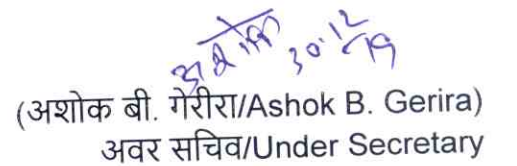 अशोक 30.12.19
(अशोक बी. गेरीरा/Ashok B. Gerira)
अवर सचिव/Under Secretary